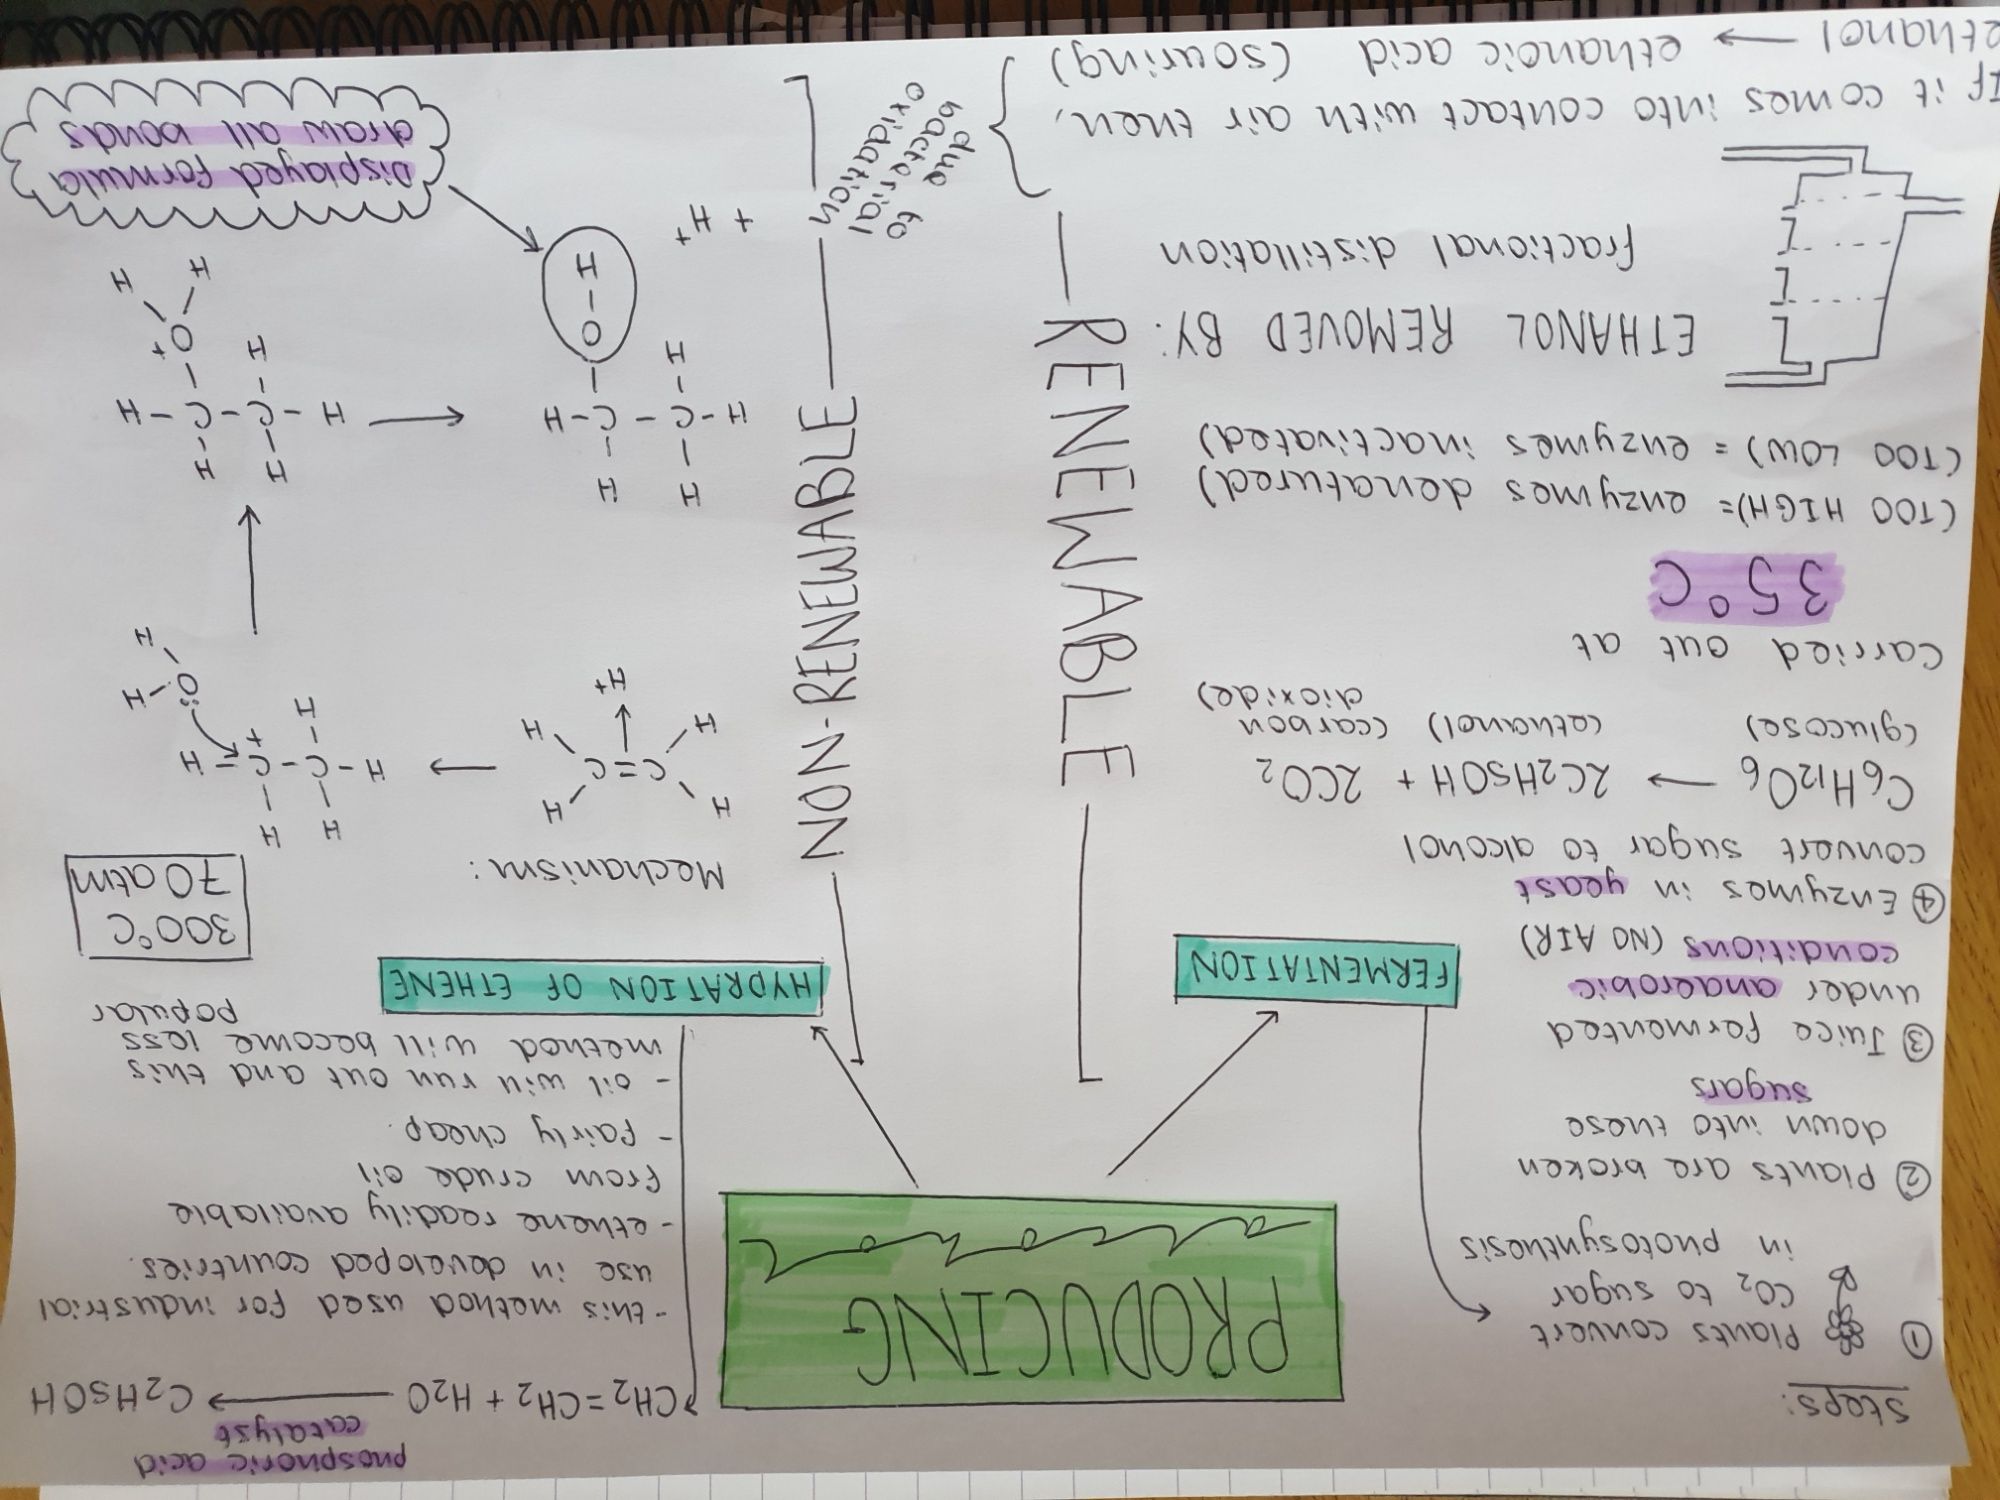 PRODUCING
alcohol
Steps:
① Plants convert
CO2 to sugar
in photosynthesis
② Plants are broken
down into these
sugars
③ Juice fermented
under anaerobic
conditions (NO AIR)
④ Enzymes in yeast
convert sugar to alcohol
C6H12O6 → 2C2H5OH + 2CO2
(glucose) (ethanol) (carbon
dioxide)
Carried out at
35°C
(TOO HIGH) = enzymes denatured)
(TOO LOW) = enzymes inactivated)
ETHANOL REMOVED BY:
fractional distillation
If it comes into contact with air then,
ethanol → ethanoic acid (souring)
due to
bacterial
oxidation
FERMENTATION
RENEWABLE
HYDRATION OF ETHENE
NON-RENEWABLE
phosphoric acid
catalyst
CH2=CH2 + H2O → C2H5OH
- this method used for industrial
use in developed countries.
- ethene readily available
from crude oil
- fairly cheap.
- oil will run out and this
method will become less
popular
300°C
70 atm
Mechanism:
H H
C=C
H H
H+
→
H H
H-C-C=H
H +
:O
H H
→
H H
H-C-C-H
H O+
H H
→
H H
H-C-C-H
H O
H
+ H+
Displayed formula
draw all bonds